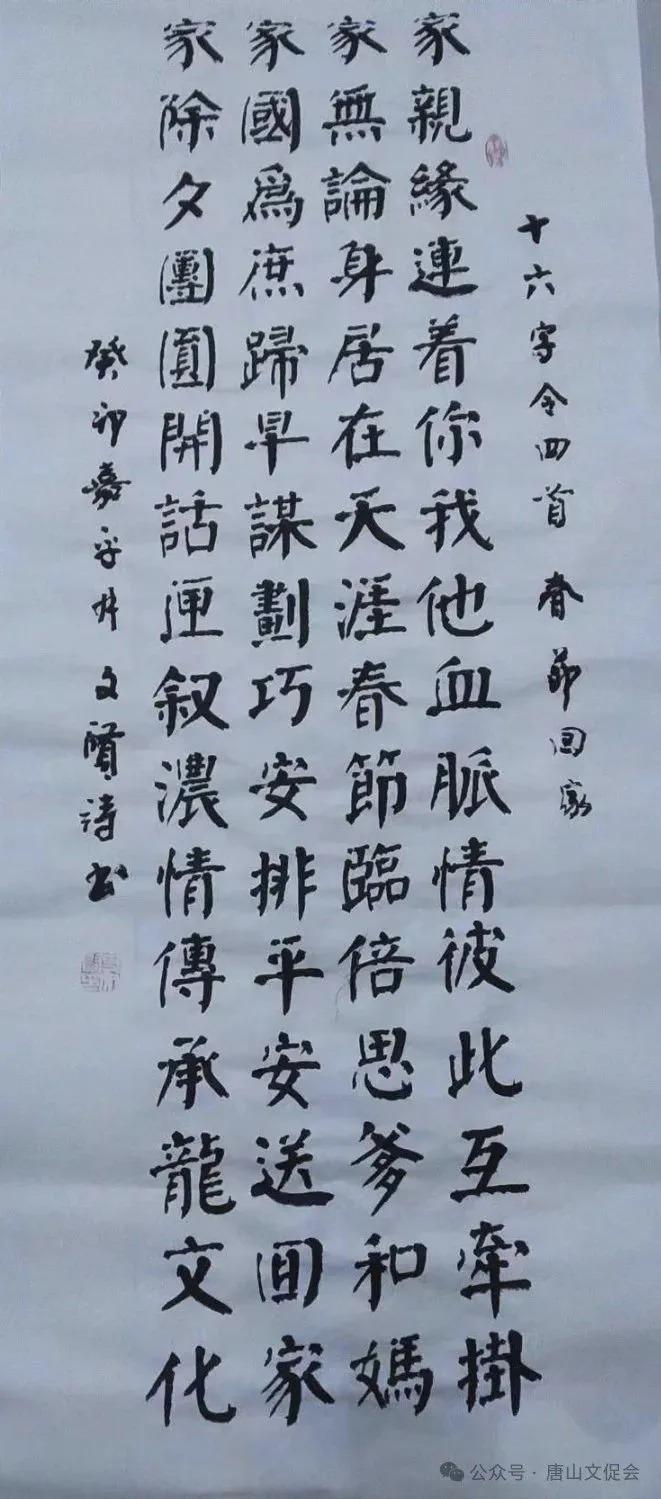 十六字令四首 春节回家
家親緣連着你我他血脈情彼此互牽掛
家無論身居在天涯春節臨倍思爹和媽
家國爲庶歸早謀劃巧安排平安送回家
家除夕團圓開話匣叙濃情傳承龍文化
癸卯嘉平井文賢诗书
公众号·唐山文促会